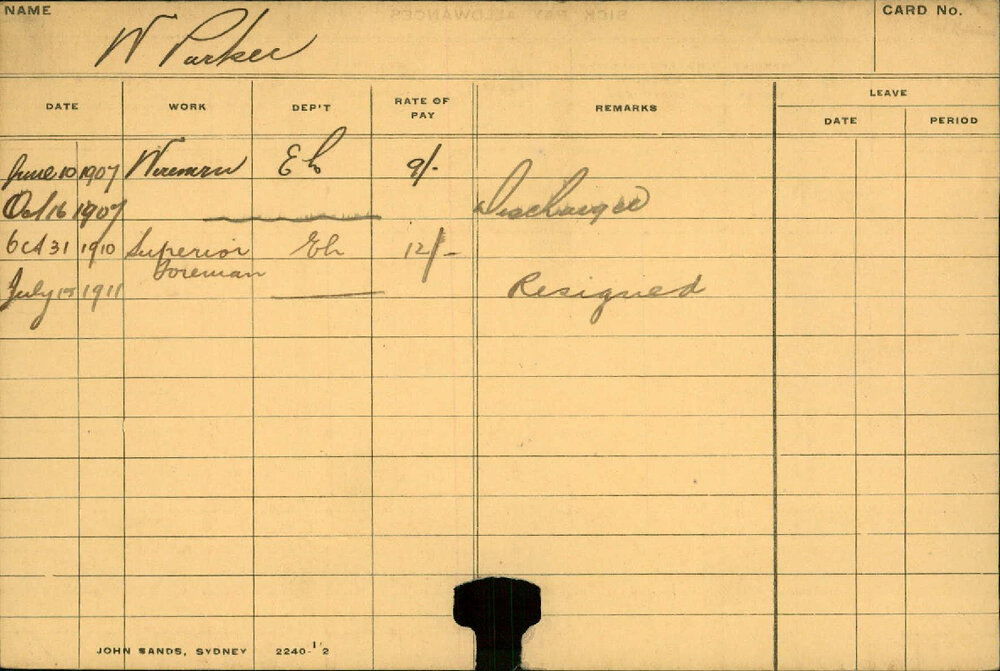 NAME
W Parker
CARD No.
DATE WORK DEP'T RATE OF PAY REMARKS LEAVE
DATE PERIOD
June 10 1907 Wireman 9/-
Oct 16 1907 Discharged
Oct 31 1910 Superior Foreman 12/-
July 1911 Resigned
JOHN SANDS, SYDNEY 2240-1'2